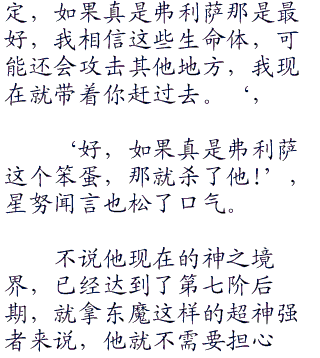 定，如果真是弗利萨那是最
好，我相信这些生命体，可
能还会攻击其他地方，我现
在就带着你赶过去。‘，
‘好，如果真是弗利萨
这个笨蛋，那就杀了他!’，
星努闻言也松了口气。
不说他现在的神之境
界，已经达到了第七阶后
期，就拿东魔这样的超神强
者来说，他就不需要担心